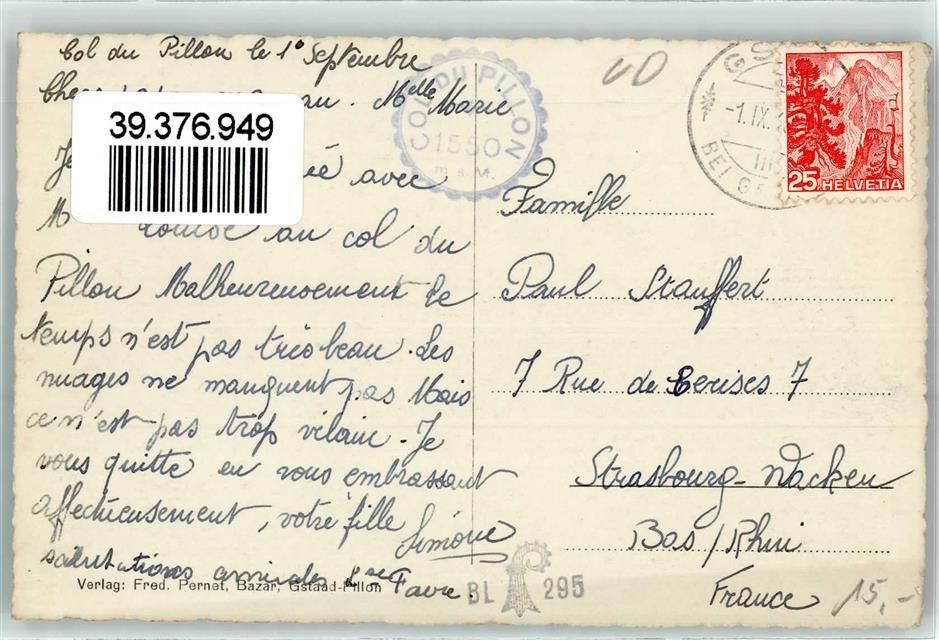 Col du Pillon le 1° Septembre
Melle Marie
39.376.949
Je avec
M au col du
Pillon Malheureusement le
temps n'est pas très beau. Les
nuages ne manquent pas Mais
ce n'est pas trop vilain. Je
vous quitte en vous embrassant
affectueusement, votre fille
Simone
salutations amicales Lse Favre
Verlag: Fred. Pernet, Bazar, Gstaad-Pillon
COL DU PILLON
1550
m s. M.
-1.IX.
BEI
25 HELVETIA
Famille
Paul Stauffert
7 Rue de Cerises 7
Strasbourg-Wacken
Bas/Rhin
France
BL 295
15,-